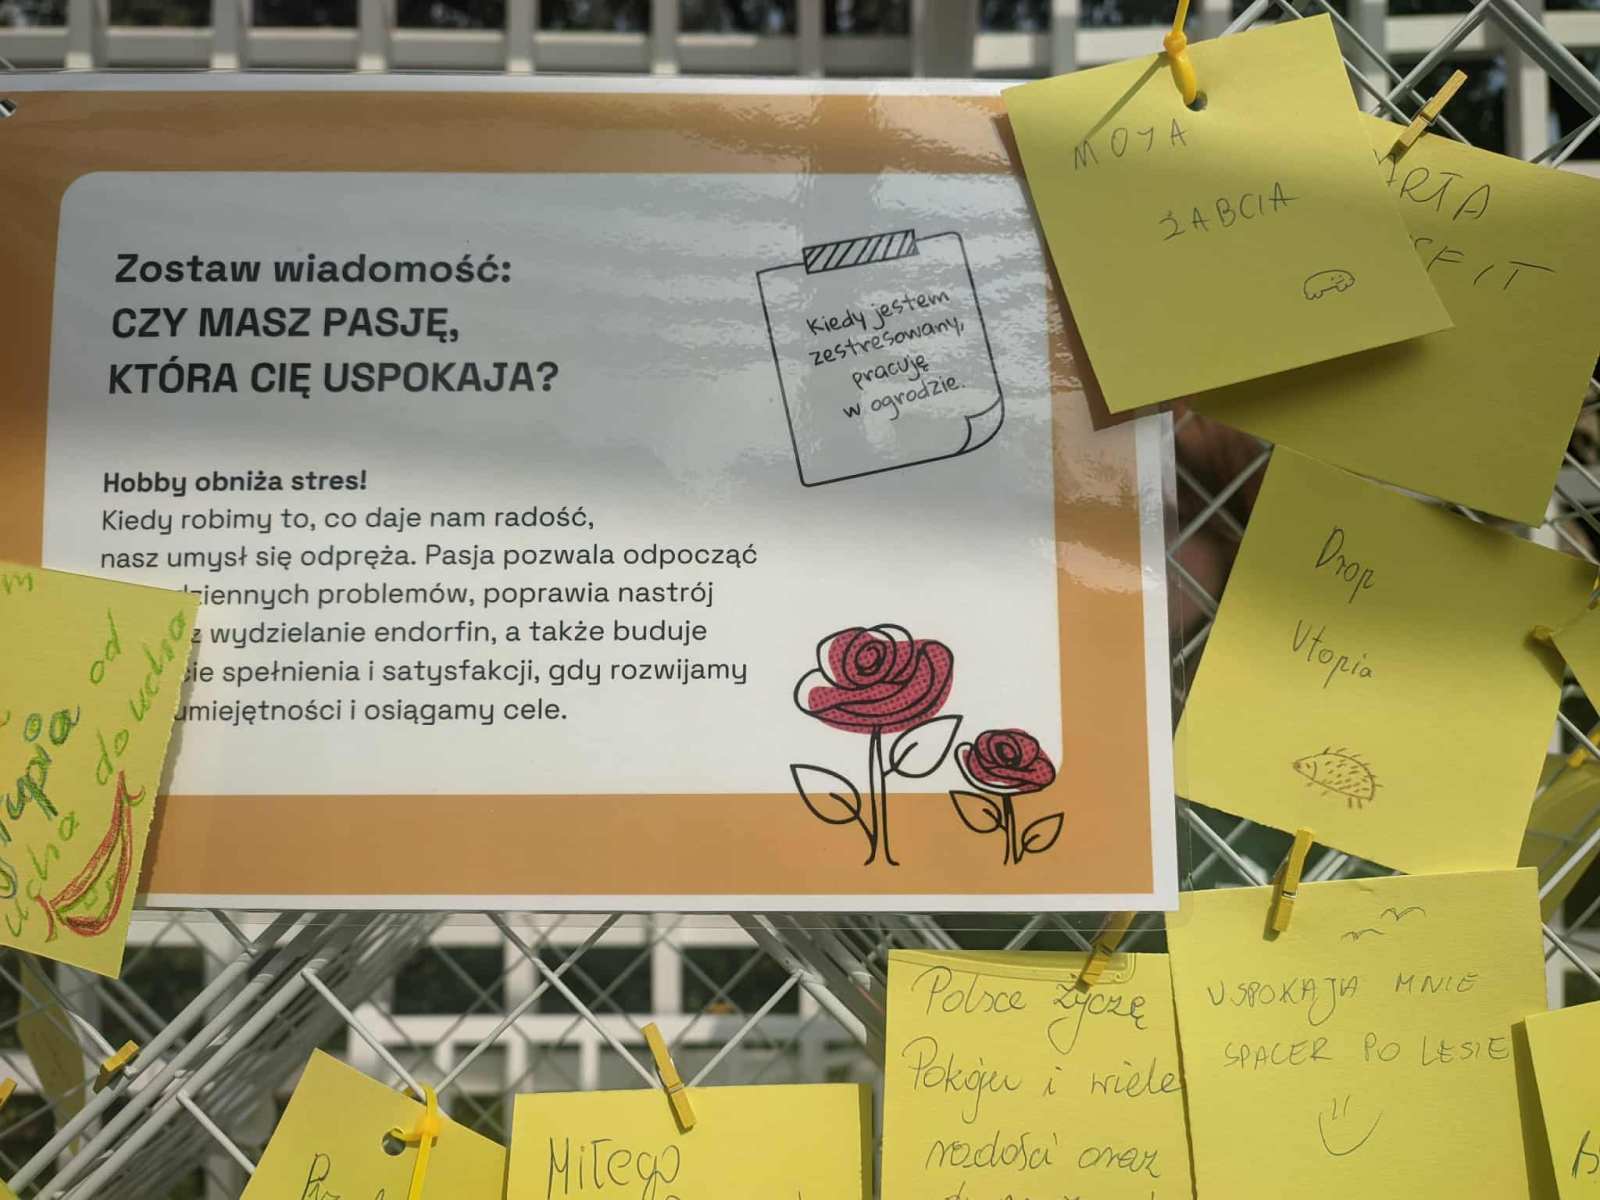 Zostaw wiadomość:
CZY MASZ PASJĘ,
KTÓRA CIĘ USPOKAJA?
Kiedy jestem
zestresowany,
pracuję
w ogrodzie.
Hobby obniża stres!
Kiedy robimy to, co daje nam radość,
nasz umysł się odpręża. Pasja pozwala odpocząć
dziennych problemów, poprawia nastrój
z wydzielanie endorfin, a także buduje
cie spełnienia i satysfakcji, gdy rozwijamy
umiejętności i osiągamy cele.
MOYA
ŻABCIA
ARTA
FIT
Drop
Utopia
od
do ucha
ucha
Polsce życzę
Pokoju i wiele
radości oraz
USPOKAJA MNIE
SPACER PO LESIE
Miłego